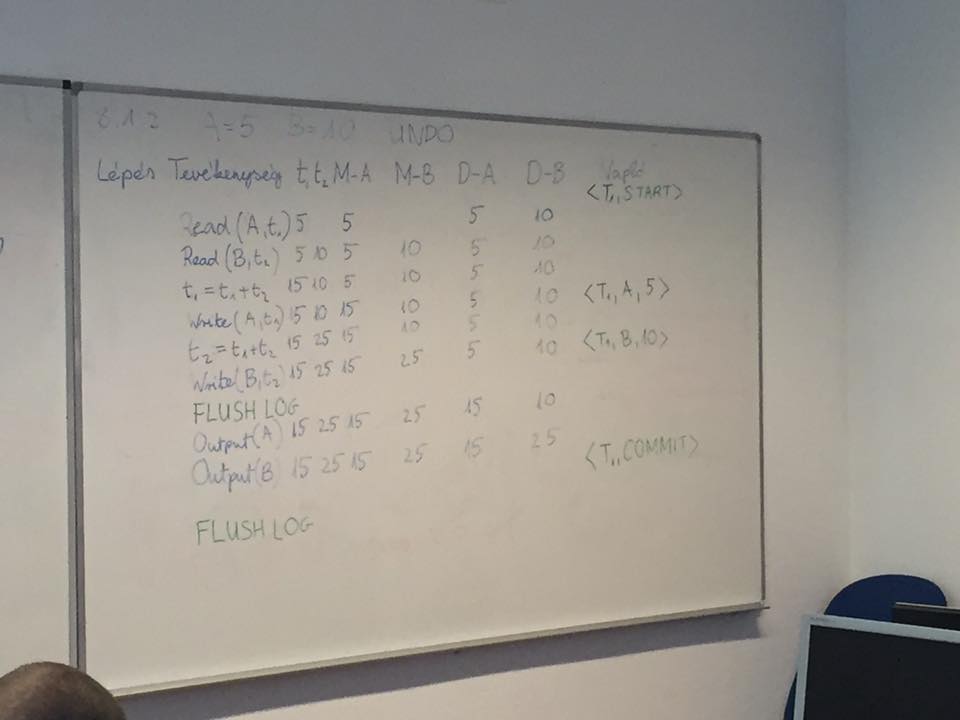 6.1.2 A=5 B=10 UNDO
Lépés Tevékenység t₁ t₂ M-A M-B D-A D-B Napló
<T₁, START>
Read(A,t₁) 5 5 5 10
Read(B,t₂) 5 10 5 10 5 10
t₁=t₁+t₂ 15 10 5 10 5 10
Write(A,t₁) 15 10 15 10 5 10 <T₁, A, 5>
t₂=t₁+t₂ 15 25 15 10 5 10
Write(B,t₂) 15 25 15 25 5 10 <T₁, B, 10>
FLUSH LOG
Output(A) 15 25 15 25 15 10
Output(B) 15 25 15 25 15 25
<T₁, COMMIT>
FLUSH LOG